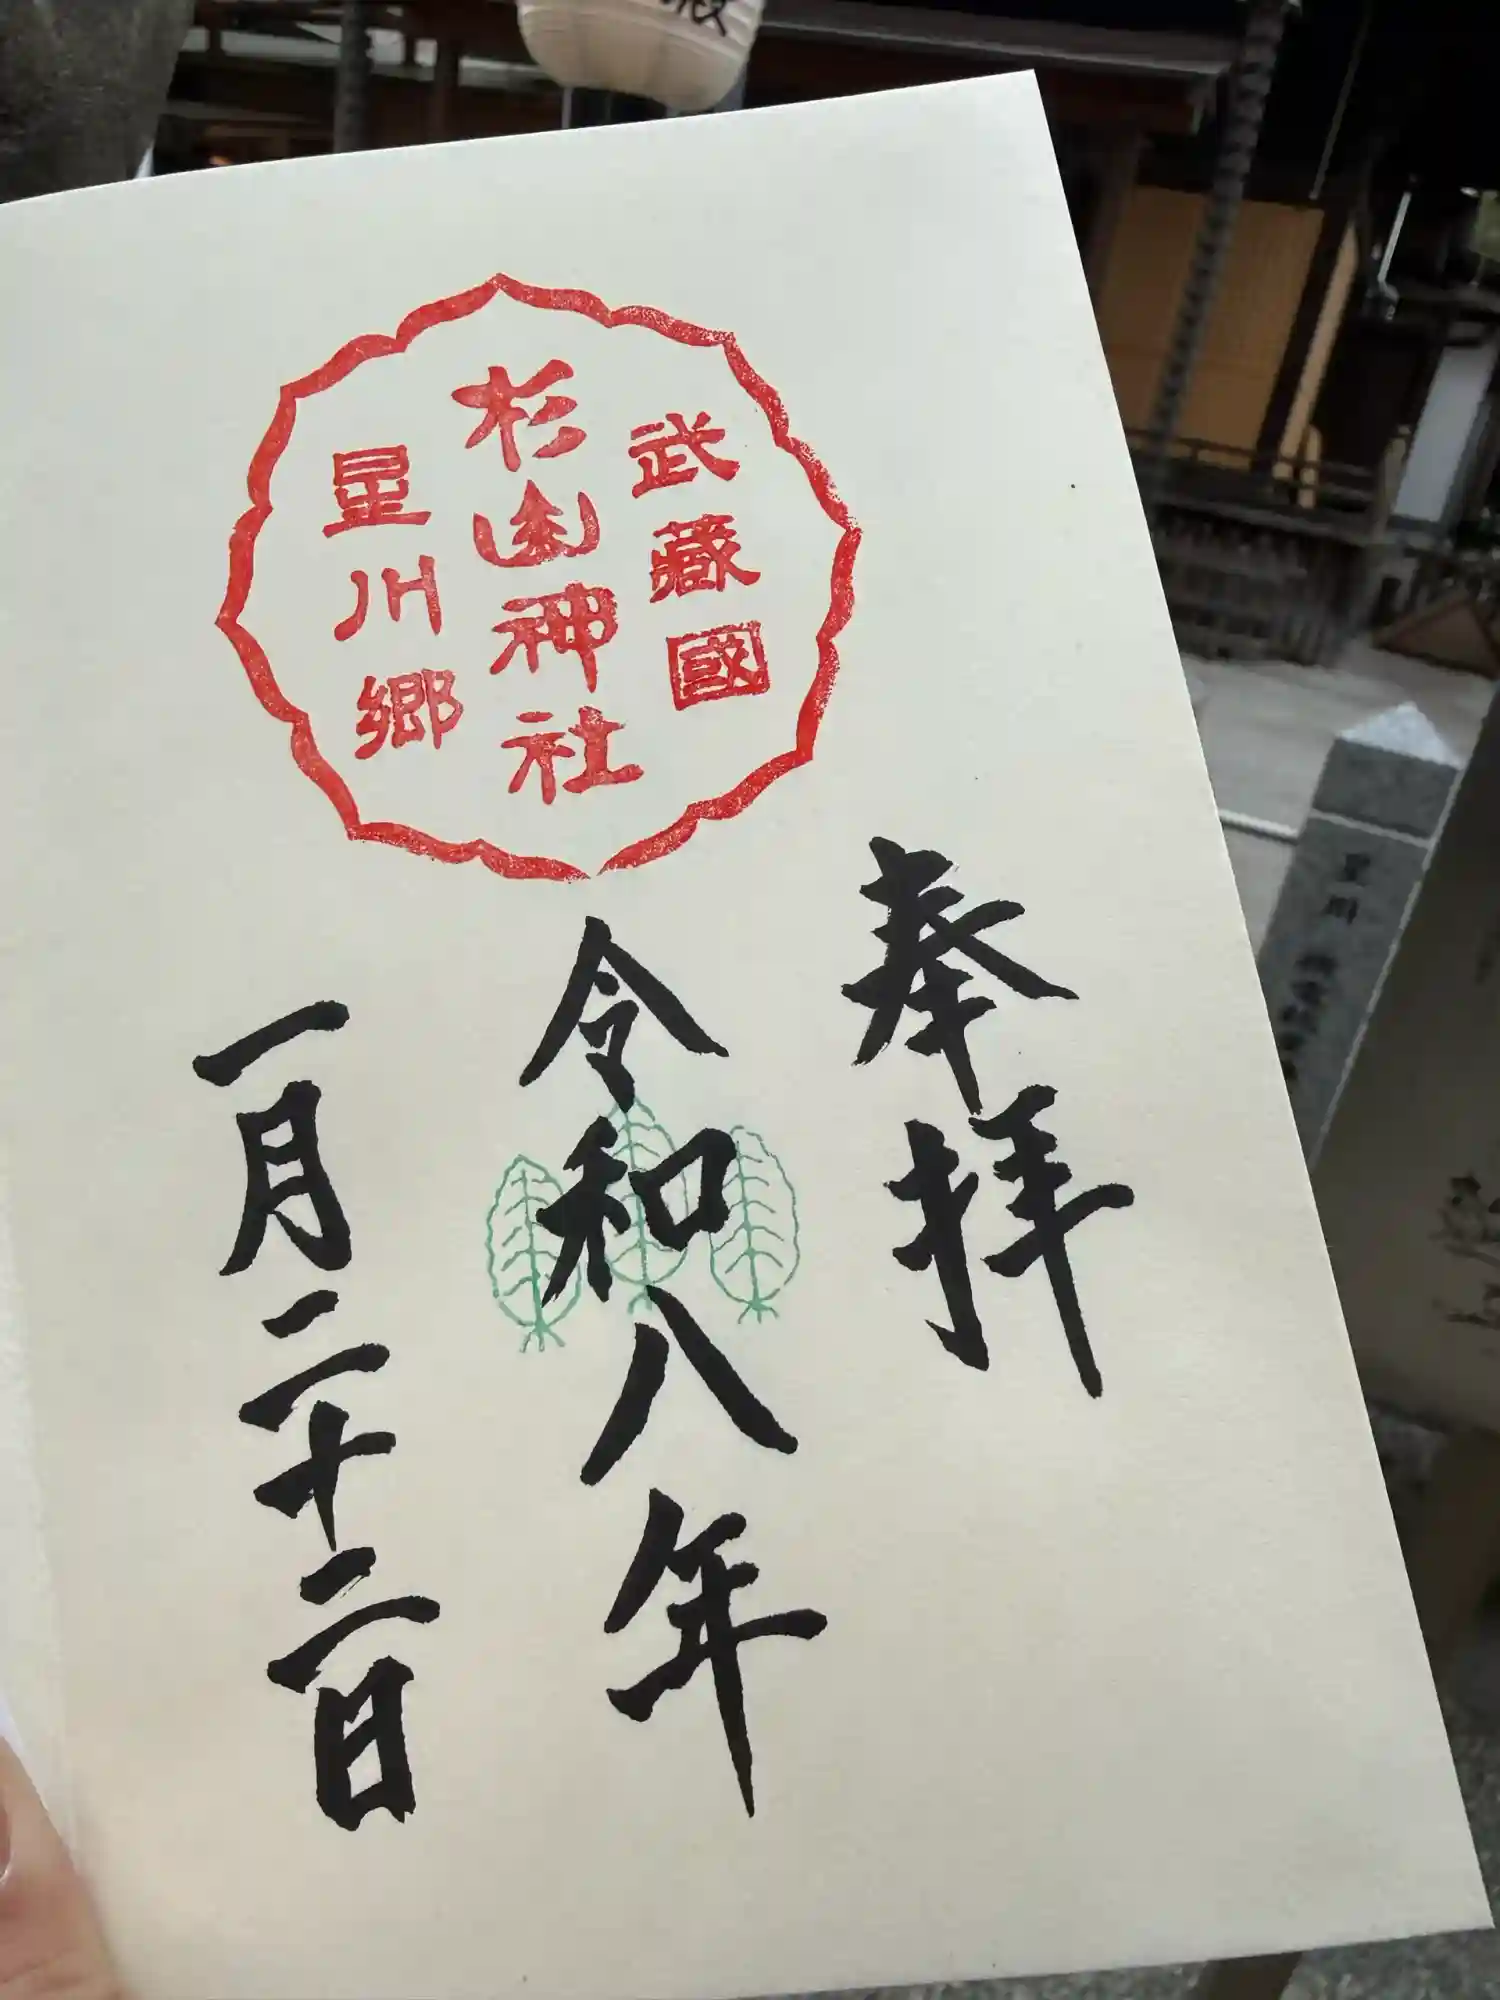 武藏國
杉山神社
星川郷
奉拝
令和八年
一月二十二日
殿
星川